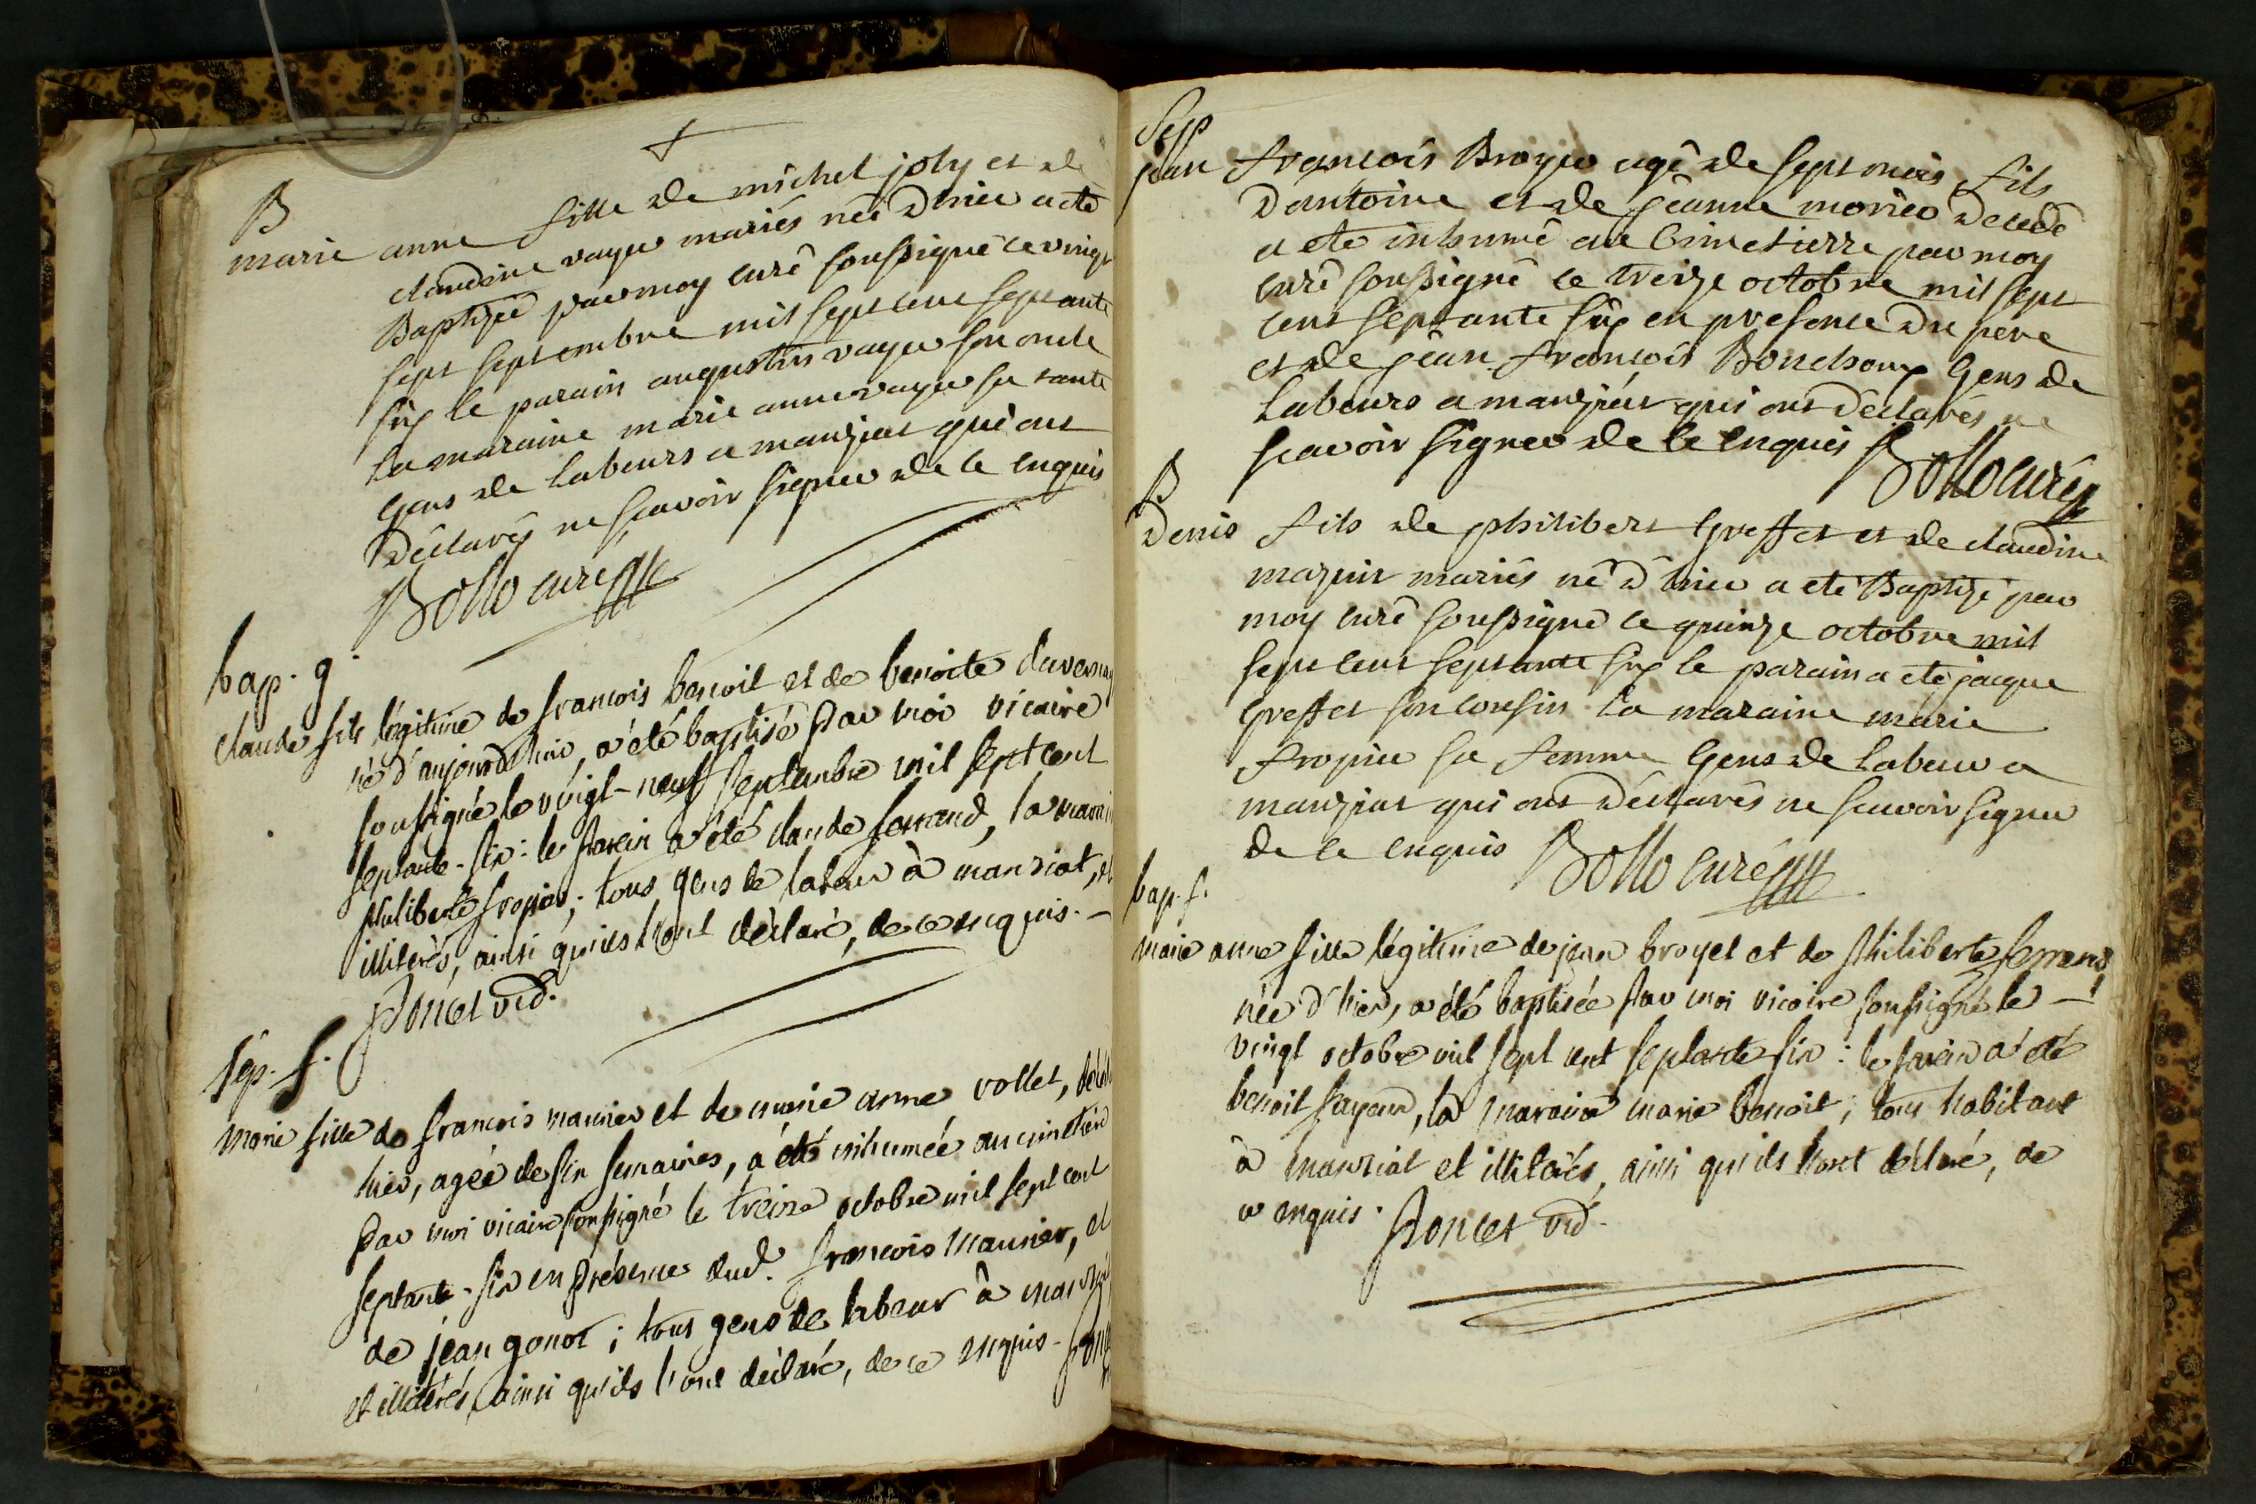 B
marie anne fille de michel joly et de
claudine vayer mariés née d'hier a eté
Baptizée par moy curé soussigné le vingt
sept septembre mil sept cent septante
six le parain augustin vayer son oncle
la maraine marie anne vayer sa tante
gens de labeurs a manziat qui ont
déclarés ne scavoir signer de ce enquis
Bollo curé
bap. g.
claude fils légitime de francois benoit et de benoite
né d'aujourd'hui, a été baptisé par moi vicaire
soussigné le vingt-neuf septembre mil sept cent
septante-six: le parein a été claude ferrand, la
philiberte fropier; tous gens de labeur à manziat, et
illiterés, ainsi qu'ils l'ont déclaré, de ce enquis.
poncet vic.
sép. f.
marie fille de francois maunier et de marie anne vollet,
hier, agée de six semaines, a été inhumée au cimetiere
par moi vicaire soussigné le treize octobre mil sept cent
septante-six en présence dud. francois Maunier, et
de jean gonot; tous gens de labeur à
et illiterés, ainsi qu'ils l'ont déclaré, de ce enquis.
Sep
jean francois Broyer agé de sept mois fils
d'antoine et de jeanne morier decedé
a eté inhumé au Cimetierre par moy
curé soussigné le treize octobre mil sept
cent septante six en presence du pere
et de jean francois Bonchoux gens de
labeurs a manziat qui ont déclarés ne
scavoir signer de ce enquis Bollo curé
B
Denis fils de philibert Greffet et de claudine
mazuir mariés né d'hier a eté Baptizé par
moy curé soussigné le quinze octobre mil
sept cent septante six le parain a eté jacque
Greffet son cousin la maraine marie
fropier sa femme gens de labeur a
manziat qui ont déclarés ne scavoir signer
de ce enquis Bollo curé
bap. f.
marie anne fille légitime de jean broyet et de philiberte ferrand,
née d'hier, a été baptisée par moi vicaire soussigné le
vingt octobre mil sept cent septante six: le parein a été
benoit fayeur, la maraine marie benoit; tous habitant
à manziat et illiterés, ainsi qu'ils l'ont déclaré, de
ce enquis. poncet vic.